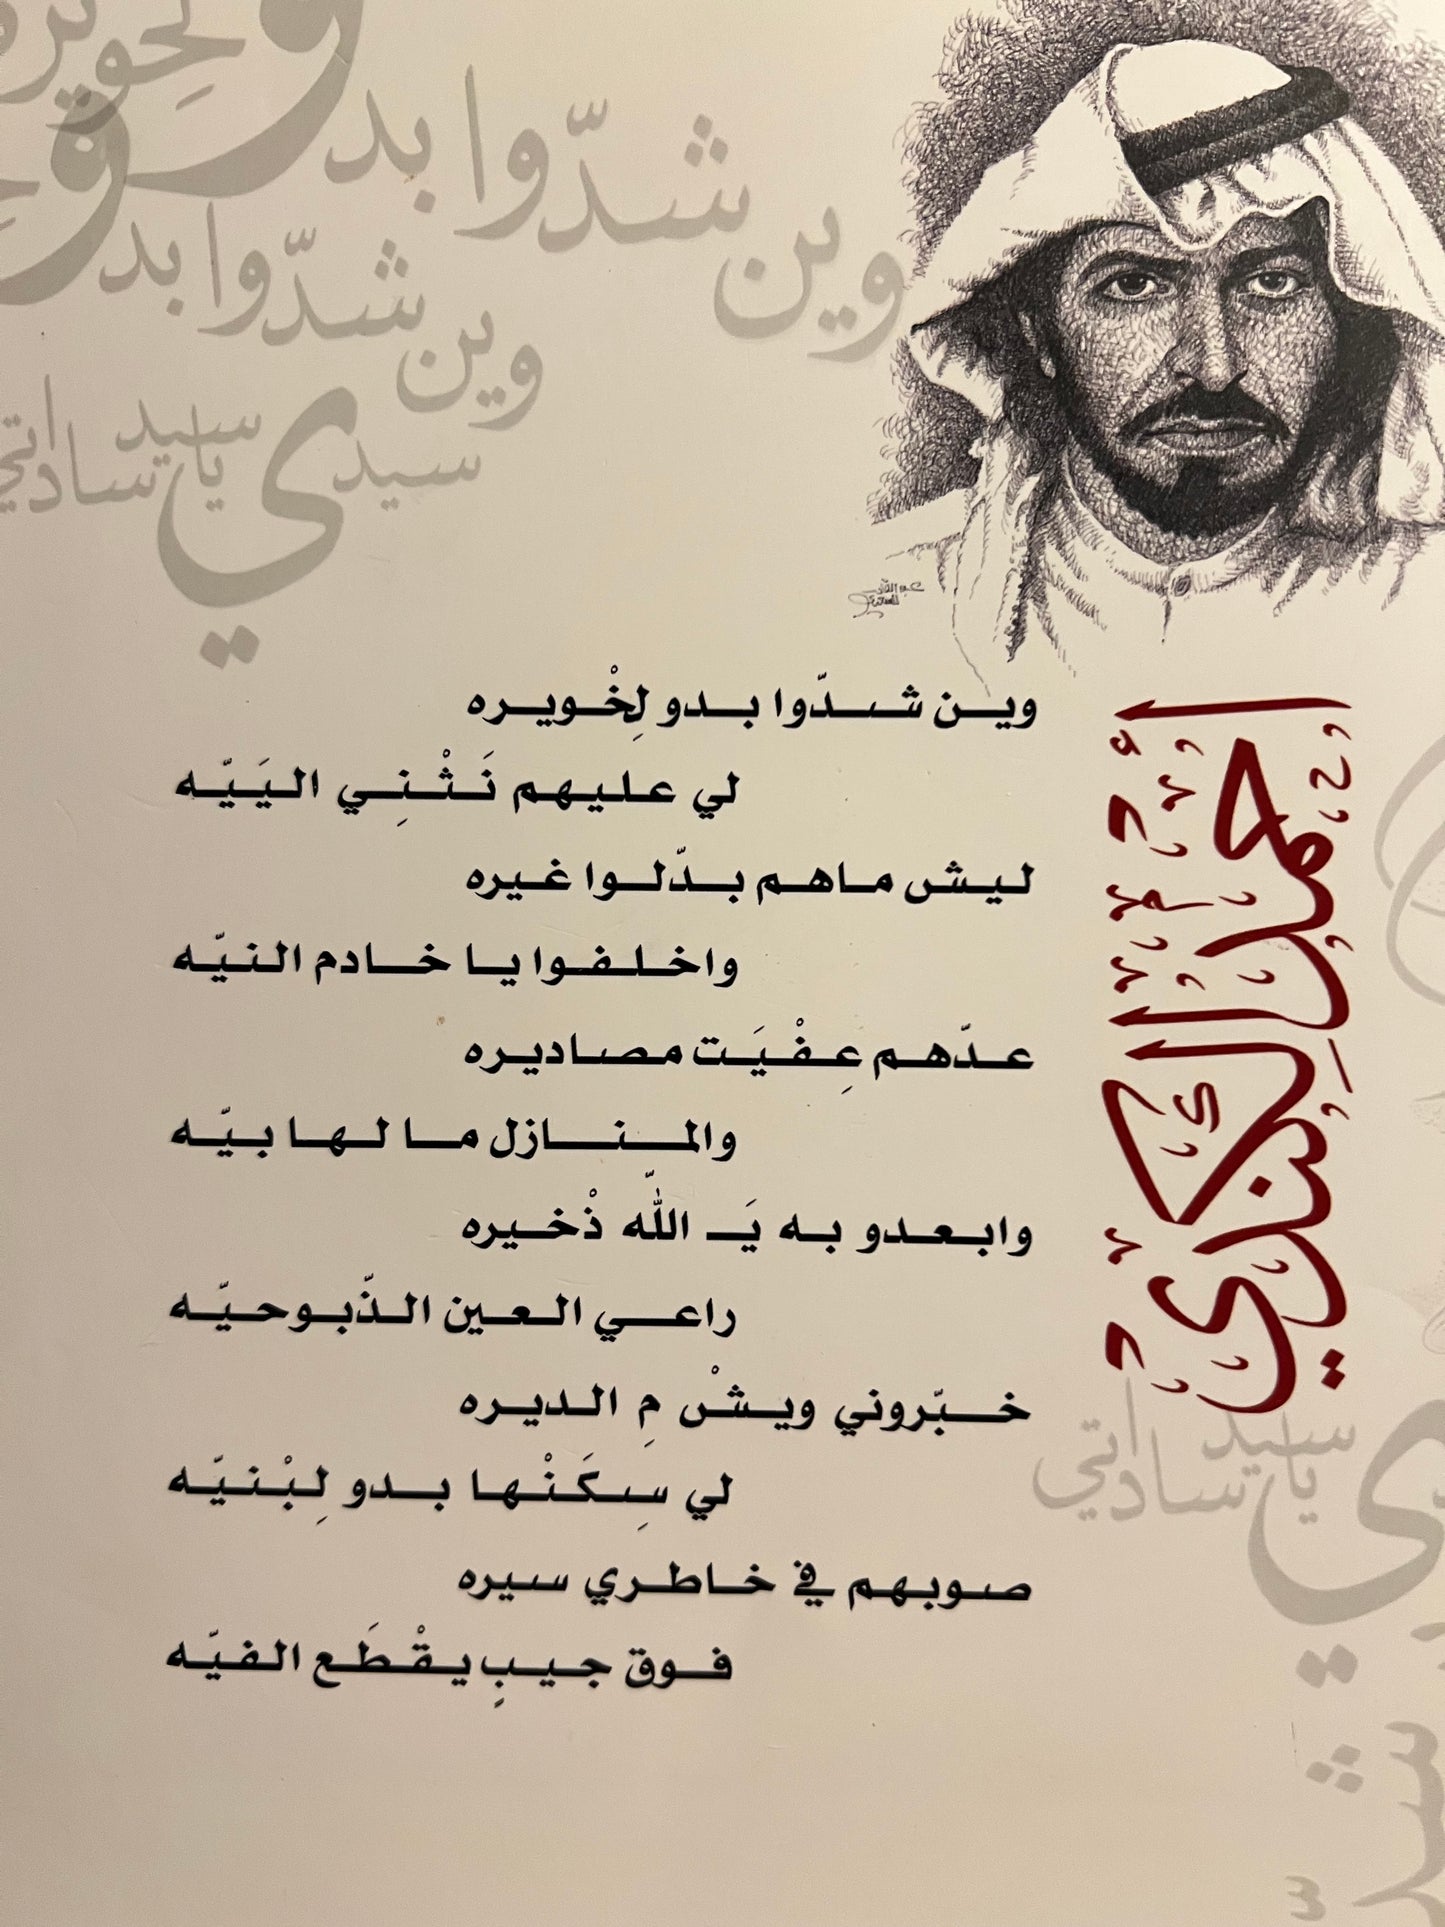 وين شدّوا بدو لحويره
وين شدّوا بدو
سيدي يا سيد ساداتي
وين شدّوا بدو لِخْويره
لي عليهم نَثْنِي اليَيّه
ليش ماهم بدّلوا غيره
واخلفوا يا خادم النيّه
عدّهم عِفْيَت مصاديره
والمنازل ما لها بيّه
وابعدو به يَـ اللّه ذْخيره
راعي العين الذّبوحيّه
خبّروني ويشْ مِ الديره
لي سِكَنْها بدو لِبْنيّه
صوبهم في خاطري سيره
فوق جيبٍ يقْطَع الفيّه
أحمد الكندي
سيد يا ساداتي